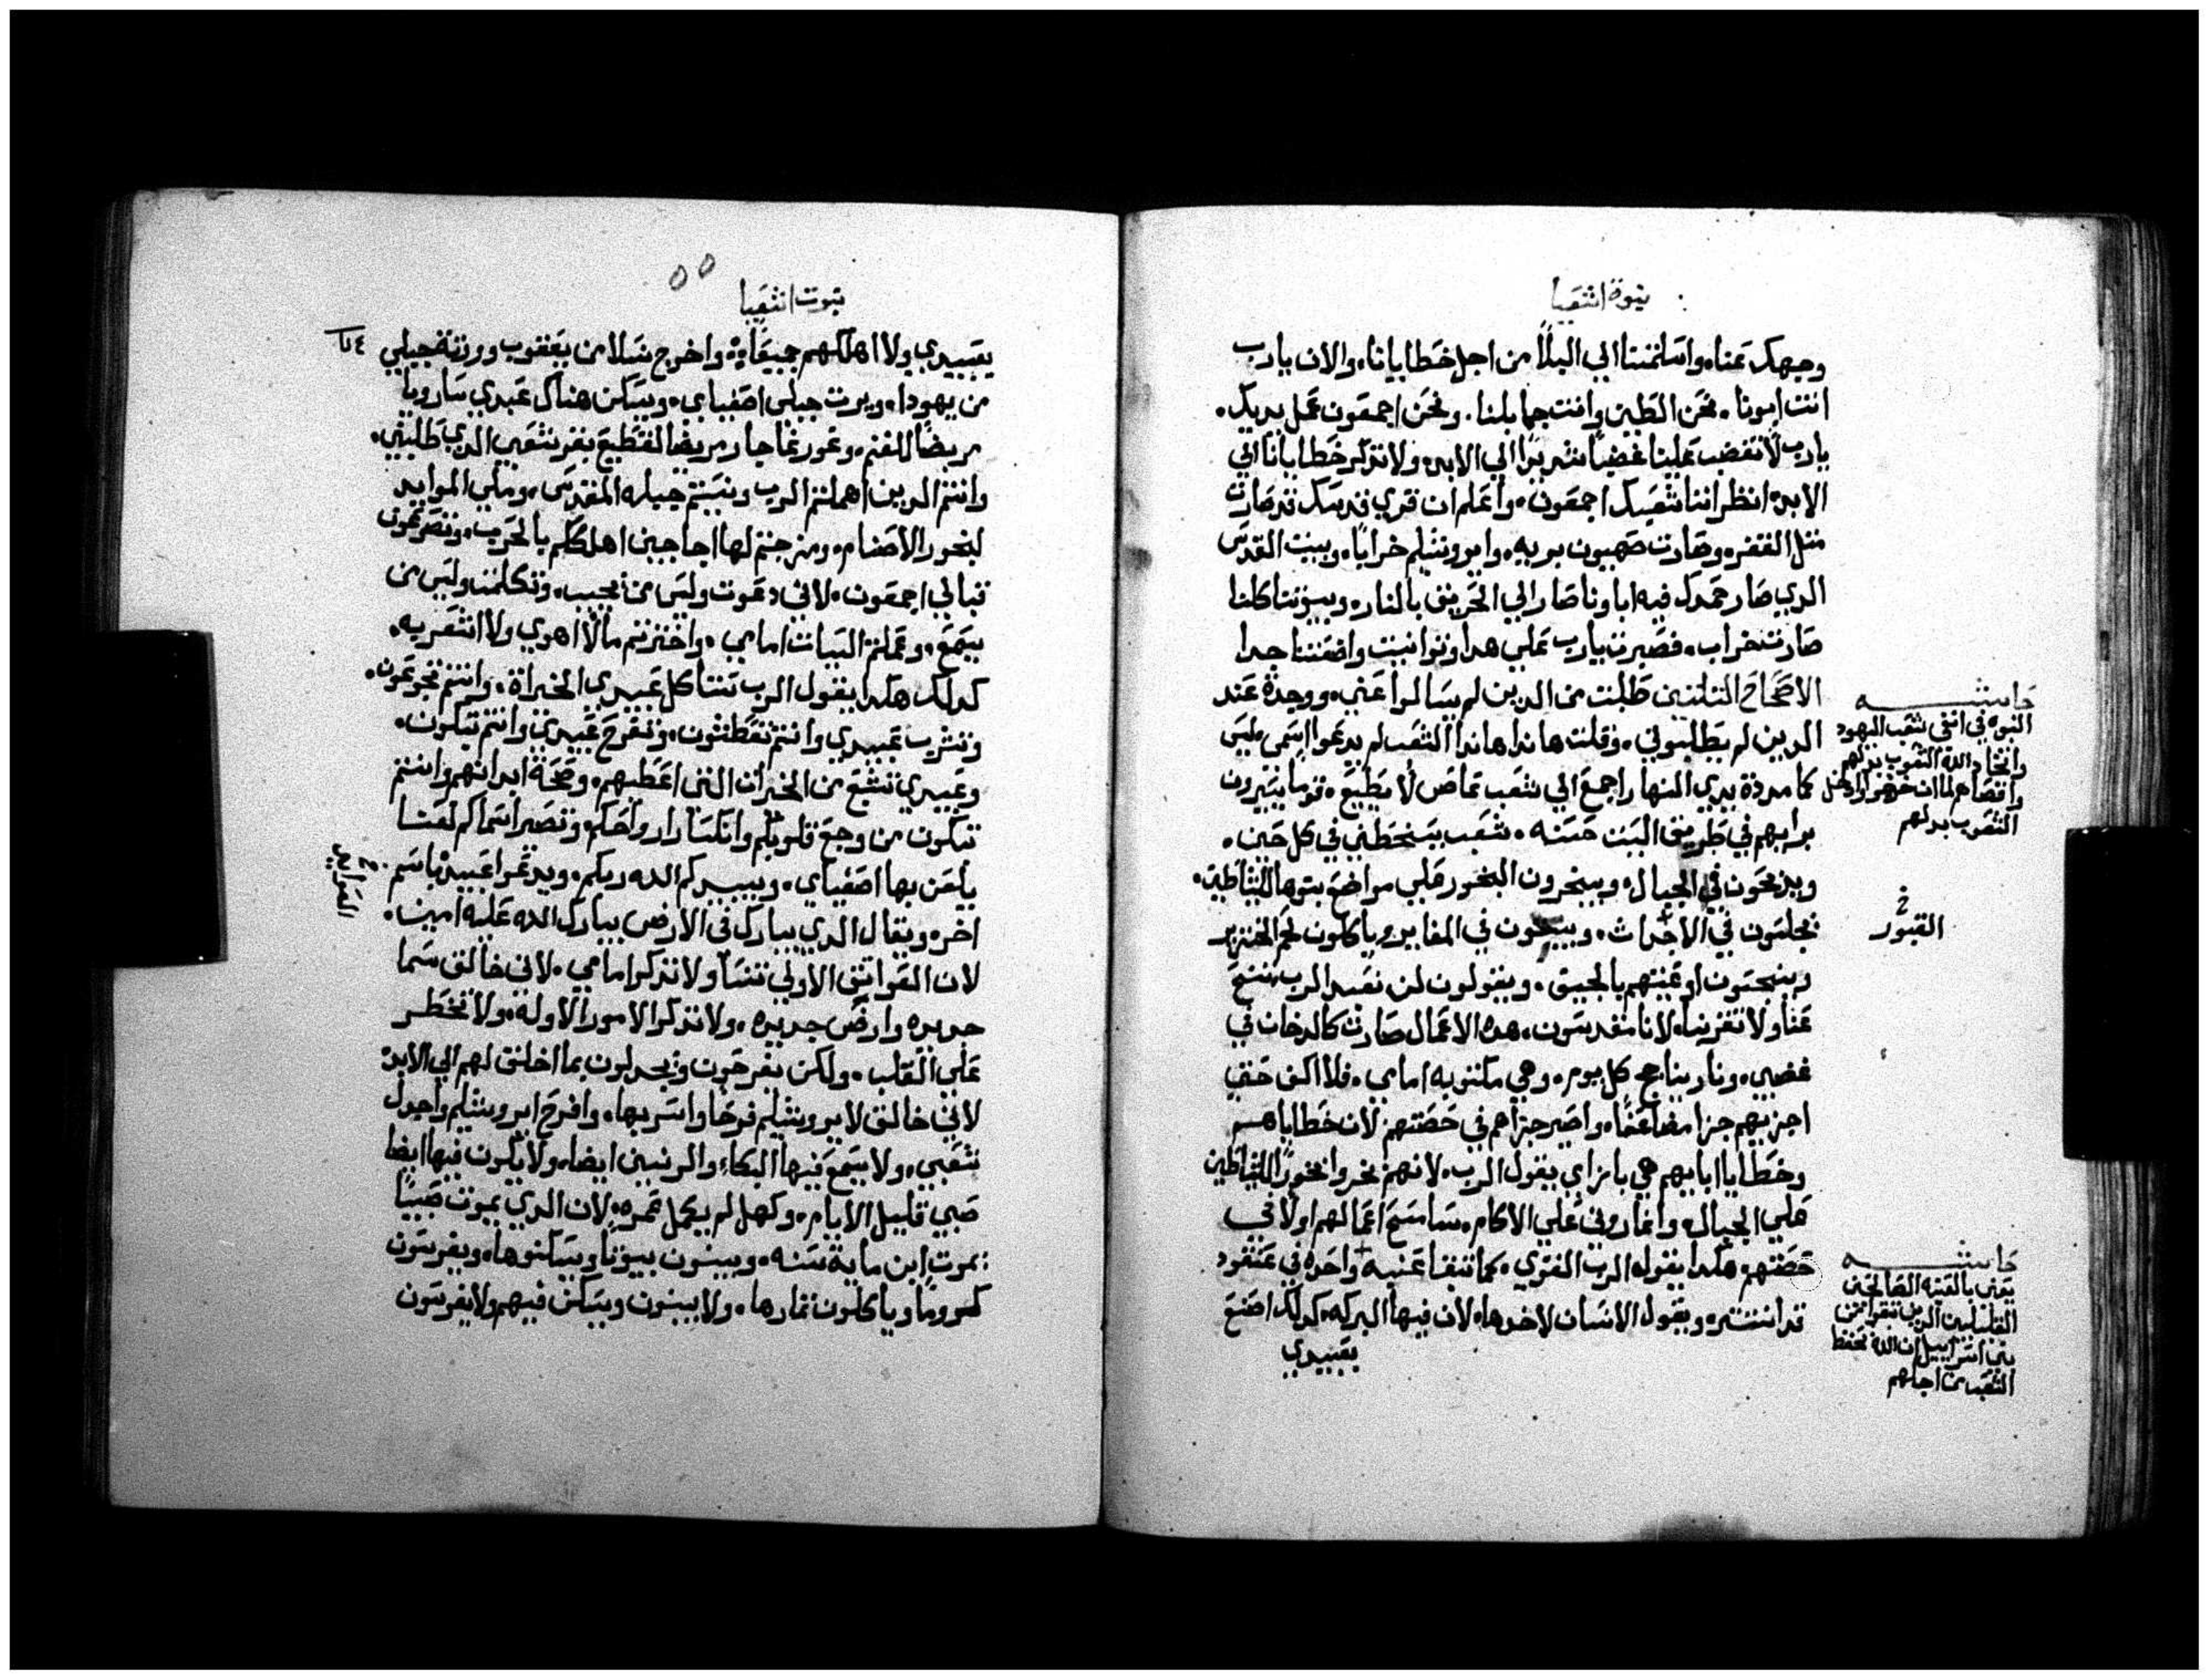 نبوة اشعيا
وجهك عنا، واسلمتنا الي البلا من اجل خطايانا، والان يارب
انت ابونا. نحن الطين وانت جابلنا. ونحن اجمعون عمل يديك.
يارب لا تغضب علينا غضبا شديدًا الي الابد، ولا تذكر خطايانا الي
الابد، انظر اننا شعبك اجمعون، واعلم ان قري قدسك قد صارت
مثل القفر، وصارت صهيون بريه، وايروشليم خرابًا، وبيت القدس
الدي صار حمدك فيه اباونا صار الي الحريق بالنار، وبيوتنا كلنا
صارت خراب، فصبرت يارب علي هدا وتوانيت واضعتنا جدا
الاصحاح الثلثين طلبت من الدين لم يسالوا عني، ووجدة عند
الدين لم يطلبوني، وقلت هاندا هاندا الشعب لم يدعوا اسمي، ليس
كما مددة يدي النهار اجمع الي شعب عاص لا يطيع، قوما يسيرون
برايهم في طريق البيت حسنه، شعب يسخطني في كل حين،
ويذبحون في الجبال، ويبخرون البخور علي مواضع بتوها للشياطين،
يجلسون في الاجداث، ويبيتون في المقابر وياكلون لحم الخنزير
وينجسون اوعيتهم بالجيف، ويقولون لن نعبد الرب تنح
عنا ولا تقربنا، لانا مقدسون، هده الاعمال صارت كالدخان في
غضبي، ونار يتاجج كل يوم، وهي مكتوبه امامي، فلا اكف حتي
اجزيهم جزا مضاعفًا، واصير جزاهم في حضتهم لان خطاياهم
وخطايا ابايهم هي بازاي يقول الرب، لانهم بخروا بخورًا للشياطين
علي الجبال، واغاروني علي الاكام، سامسح اعمالهم اولا في
حضتهم، هكدا يقوله الرب القوي، كما تبقا عنبه واحده في عنقود
قد انتشر، ويقول الانسان لاخر هاه لان فيها البركه كدلك اصنع
بعبيدي
حاشيه
النبوه في انفي شعب اليهود
واتخاد الله الشعوب بدلهم
الشعوب بدلهم
خ
القبور
حاشيه
يعني بالعنبه الصالحين
القليلين الدين تبقوا من
بني اسراييل ان الله يحفظ
الشعب من اجلهم
نبوت اشعيا
بعبيدي ولا اهلكهم جميعًا، واخرج نسلا من يعقوب وورثة جبلي
من يهودا، ويرت جبلي اصفياي، ويسكن هناك عبدي ساروبا
مربضًا للغنم، وغور عاجار مربضا لقطيع بقر شعبي الدي طلبني،
وانتم الدين اهملتم الرب ونسيتم جبله المقدس، وملي الموايد
لبخور الاصنام، ومزجتم لها اجاجين اهلككم بالحرب، وتصرعون
قبالي اجمعون، لاني دعوت وليس من يجيب، وتكلمت وليس من
يسمع، وعملتم السيات امامي، واخترتم مالا اهوي ولا انشعر به،
كدلك هكدا يقول الرب تتناكل عبيدي الخيراة، وانتم تجوعون،
وتشرب عبيدي وانتم تعطشون، وتفرح عبيدي وانتم تبكون،
وعبيدي تشبع من الخيرات التي اعطيهم، وصحة ابدانهم وانتم
تبكون من وجع قلوبكم وانكسار ارواحكم، وتصير اسماكم لعنتا
يلعن بها اصفياي، ويبيدكم الله ربكم، ويدعوا عبيده باسم
اخر، ويقال الدي يبارك في الارض يبارك الله عليه امين،
لان القوانين الاولي تنسا ولا تدكر امامي، لاني خالق سما
جديده وارض جديده، ولا تدكر الامور الاولة، ولا تخطر
علي القلب، ولكن يفرحون ويجدلون بما اخلق لهم الي الابد
لاني خالق لايروشليم فرحًا واسر بها، وافرح ايروشليم واجدل
شعبي، ولا يسمع فيها البكاء والرنين ايضا، ولا يكون فيها ايضا
صبي قليل الايام، وكهل لم يكمل عمره، لان الدي يموت صبيًا
يموت ابن ماية سنه، ويبنون بيوتًا ويسكنوها، ويغرسون
كرومًا وياكلون ثمارها، ولا يبنون ويسكن فيهم ولا يغرسون
خ